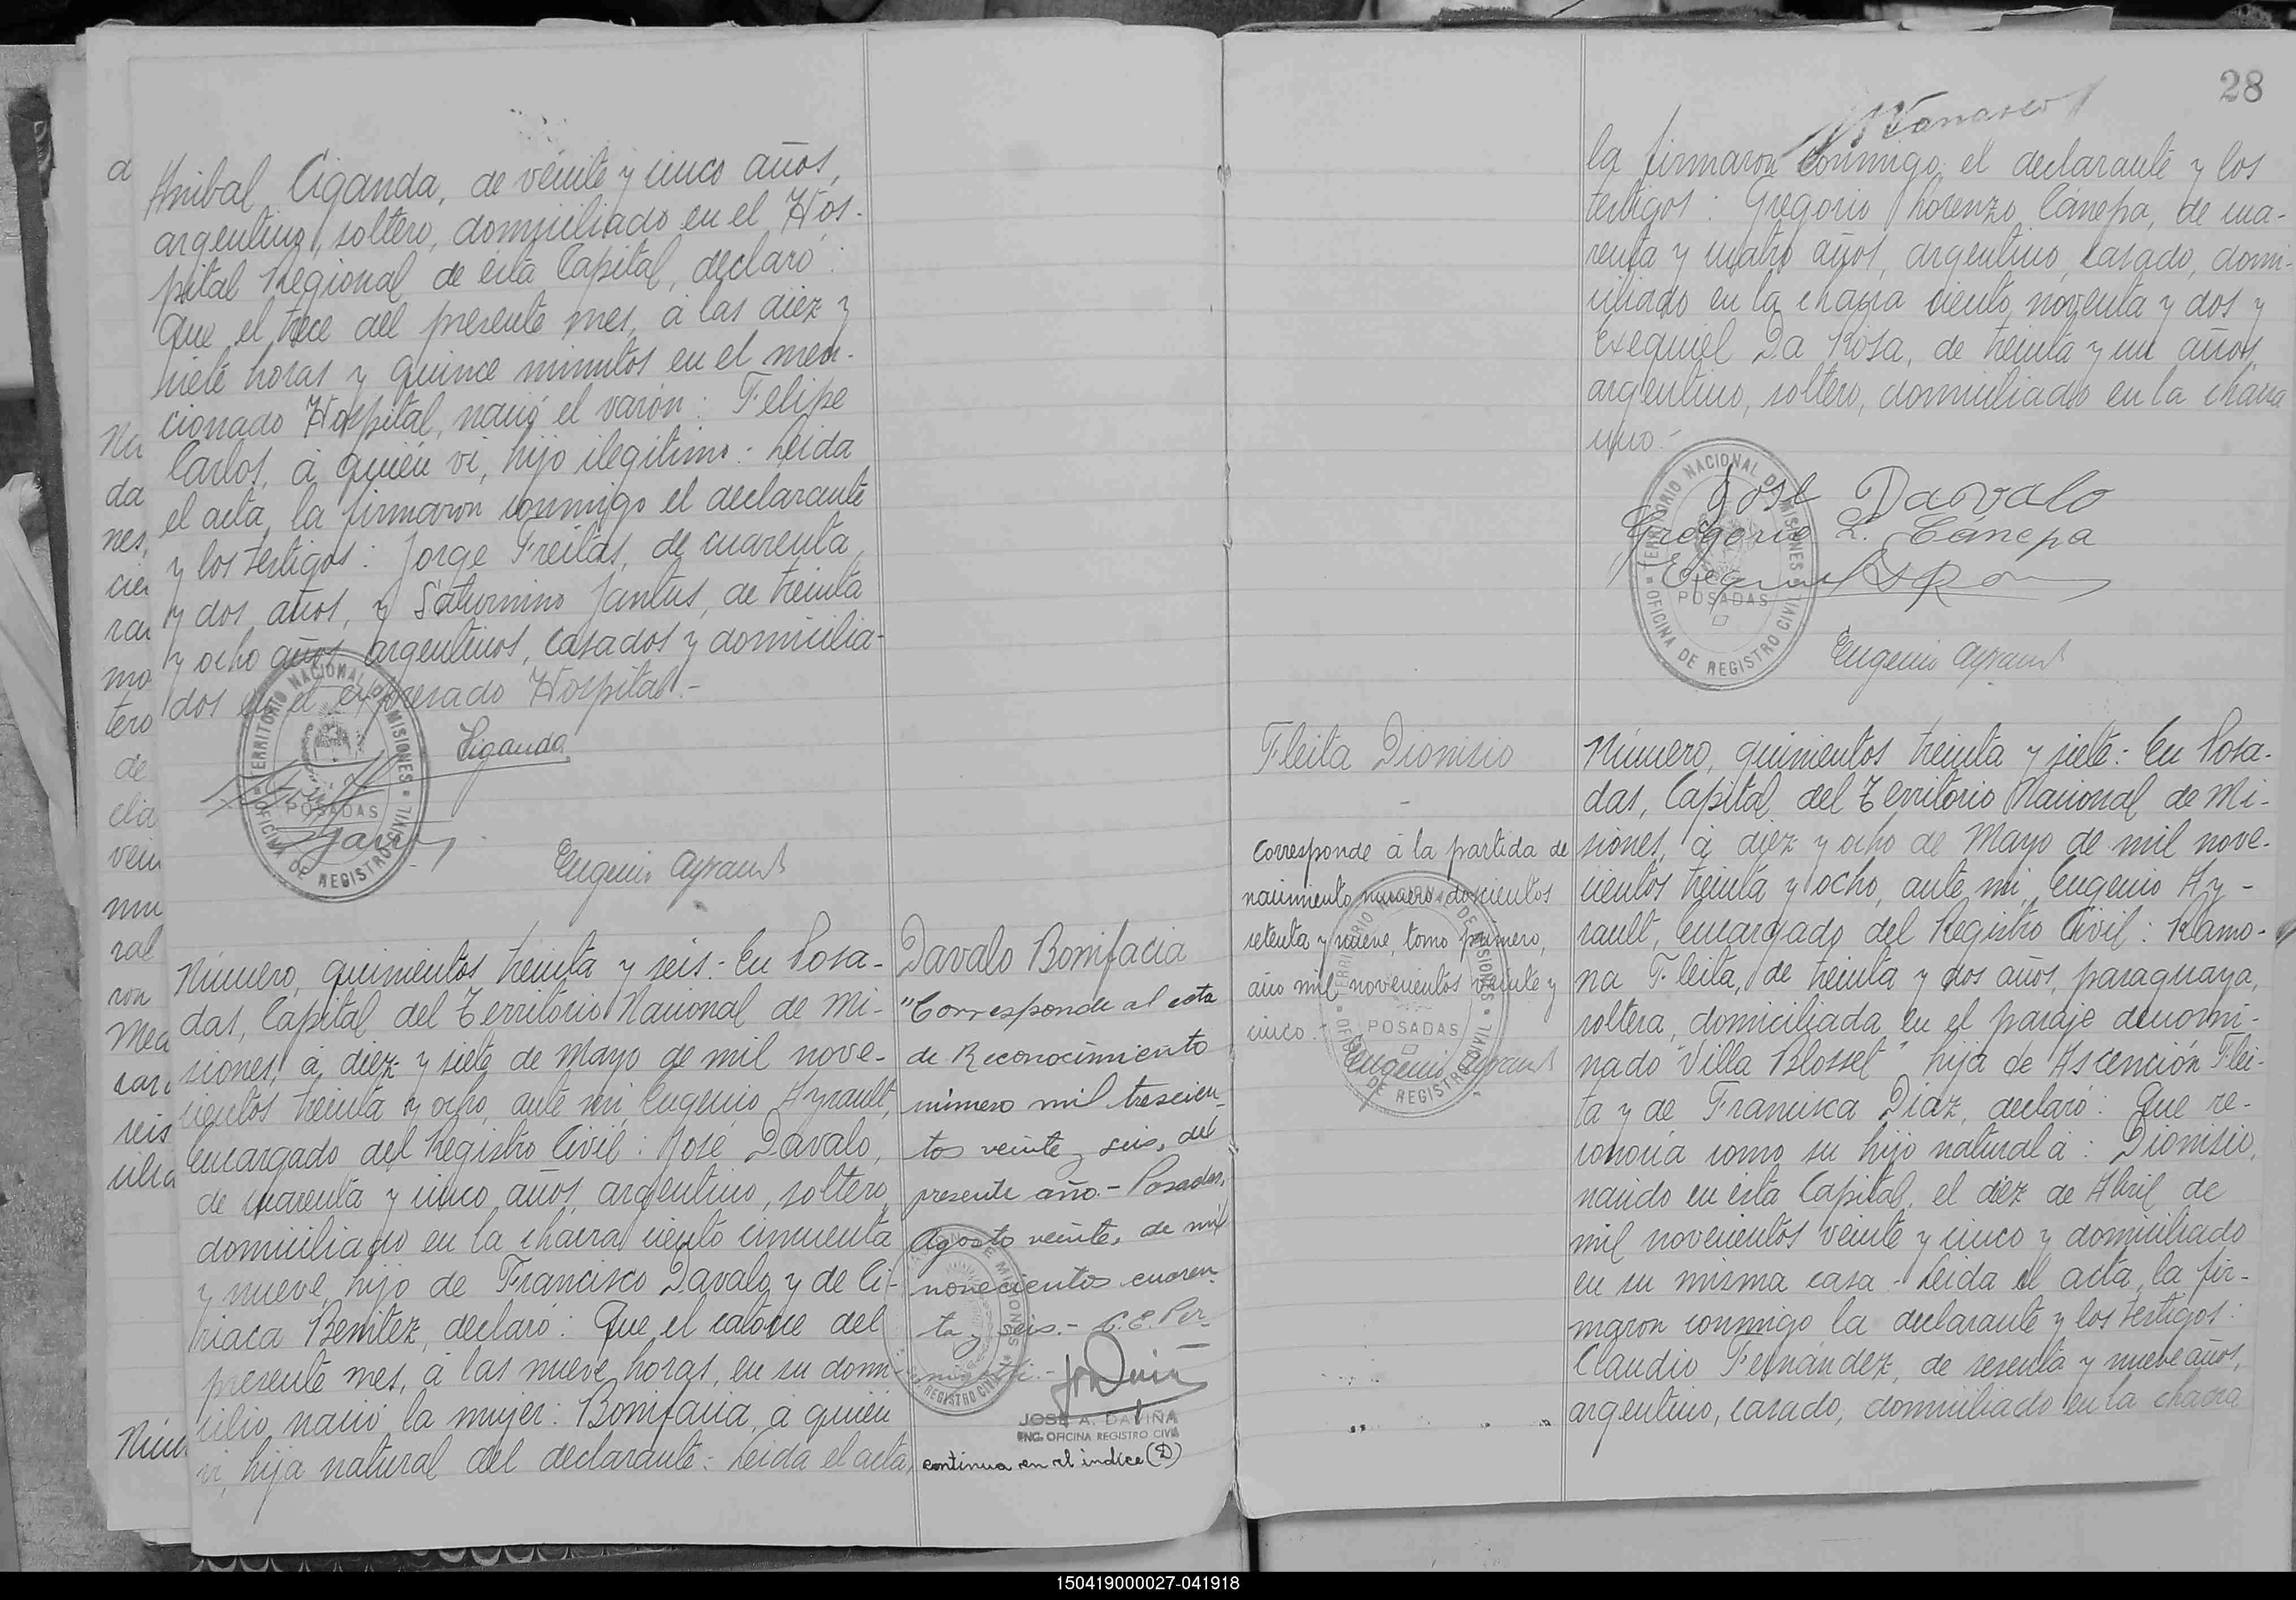 a
Anibal Ciganda, de veinte y cinco años,
argentino, soltero, domiciliado en el Hos-
pital Regional de esta Capital, declaró:
Que el trece del presente mes, á las diez y
siete horas y quince minutos en el men-
cionado Hospital, nació el varón: Felipe
Carlos, á quién vi, hijo ilegitimo.- Leida
el acta, la firmaron conmigo el declarante
y los testigos: Jorge Freitas, de cuarenta
y dos años, y Saturnino Jantus, de treinta
y ocho años, argentinos, casados y domicilia-
dos en el expresado Hospital.-
TERRITORIO NACIONAL DE MISIONES
POSADAS
OFICINA DE REGISTRO CIVIL
Ciganda
Eugenio Ayrault
Nú
da
nes,
cie
rar
mo
tero
de
cla
vein
mu
ral
ron
Mea
seis
Núm
Número, quinientos treinta y seis.- En Posa-
das, Capital del Territorio Nacional de Mi-
siones, á diez y siete de Mayo de mil nove-
cientos treinta y ocho, ante mi, Eugenio Ayrault,
Encargado del Registro Civil: José Davalo,
de cuarenta y cinco años, argentino, soltero,
domiciliado en la chacra ciento cincuenta
y nueve, hijo de Francisco Davalo y de Ci-
riaca Benitez, declaró: Que el catorce del
presente mes, á las nueve horas, en su domi-
cilio nació la mujer: Bonifacia, á quién
vi, hija natural del declarante.- Leida el acta,
Davalo Bonifacia
"Corresponde al acta
de Reconocimiento
número mil trescien-
tos veinte y seis, del
presente año.- Posadas,
Agosto veinte, de mil
novecientos cuaren-
ta y seis.-
JOSE A. DAVIÑA
ENC. OFICINA REGISTRO CIVIL
continua en el indice (D)
28
la firmaron conmigo el declarante y los
testigos: Gregorio Lorenzo Cánepa, de cua-
renta y cuatro años, argentino, casado, domi-
ciliado en la chacra ciento noventa y dos y
Exequiel Da Rosa, de treinta y un años,
argentino, soltero, domiciliado en la chacra
uno.-
TERRITORIO NACIONAL DE MISIONES
POSADAS
OFICINA DE REGISTRO CIVIL
José Davalo
Gregorio L. Cánepa
Eugenio Ayrault
Fleita Dionisio
Corresponde á la partida de
nacimiento número doscientos
setenta y nueve, tomo primero,
año mil novecientos veinte y
cinco.-
POSADAS
Eugenio Ayrault
Número, quinientos treinta y siete.- En Posa-
das, Capital del Territorio Nacional de Mi-
siones, á diez y ocho de Mayo de mil nove-
cientos treinta y ocho, ante mi, Eugenio Ay-
rault, Encargado del Registro Civil: Ramo-
na Fleita, de treinta y dos años, paraguaya,
soltera, domiciliada en el paraje denomi-
nado "Villa Blosset", hija de Ascención Flei-
ta y de Francisca Diaz, declaró: Que re-
conocia como su hijo natural á: Dionisio,
nacido en esta Capital, el diez de Abril de
mil novecientos veinte y cinco y domiciliado
en su misma casa.- Leida el acta, la fir-
maron conmigo la declarante y los testigos:
Claudio Fernández, de sesenta y nueve años,
argentino, casado, domiciliado en la chacra
150419000027-041918